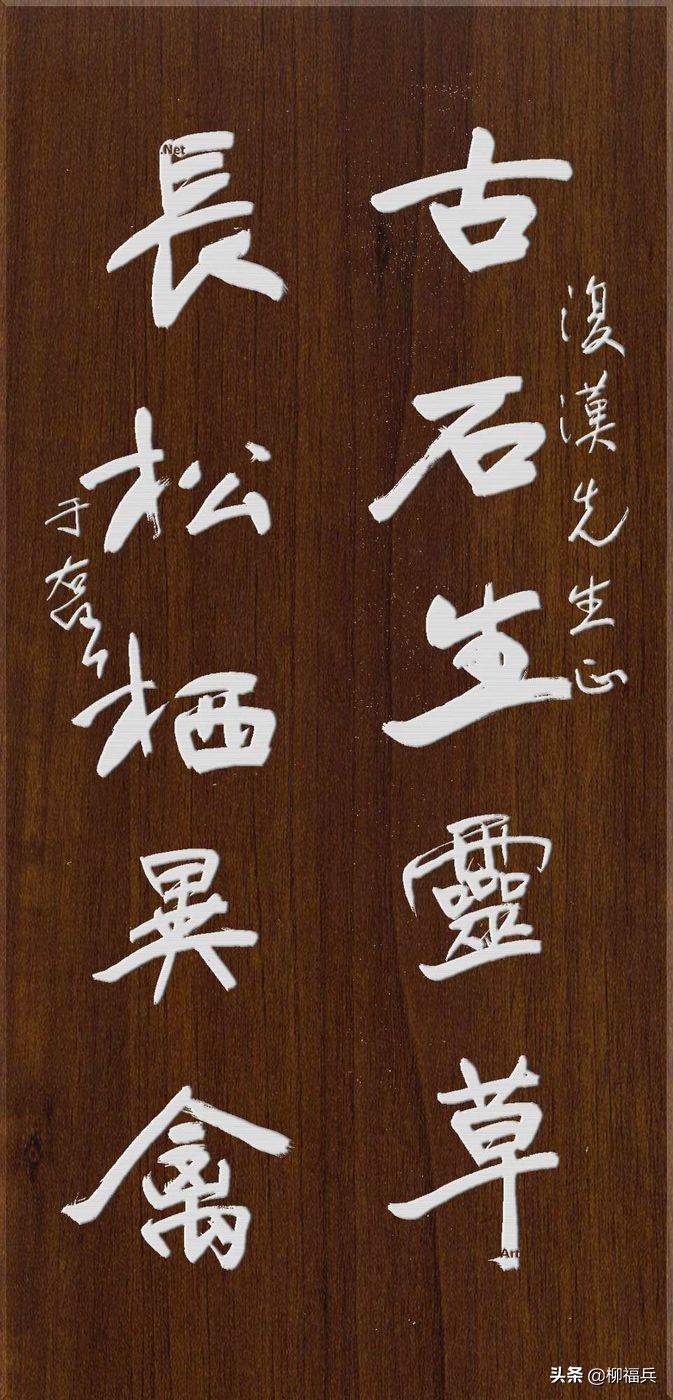 古石生靈草
復漢先生正
長松栖異禽
于右任
.Net
Art
头条 @柳福兵